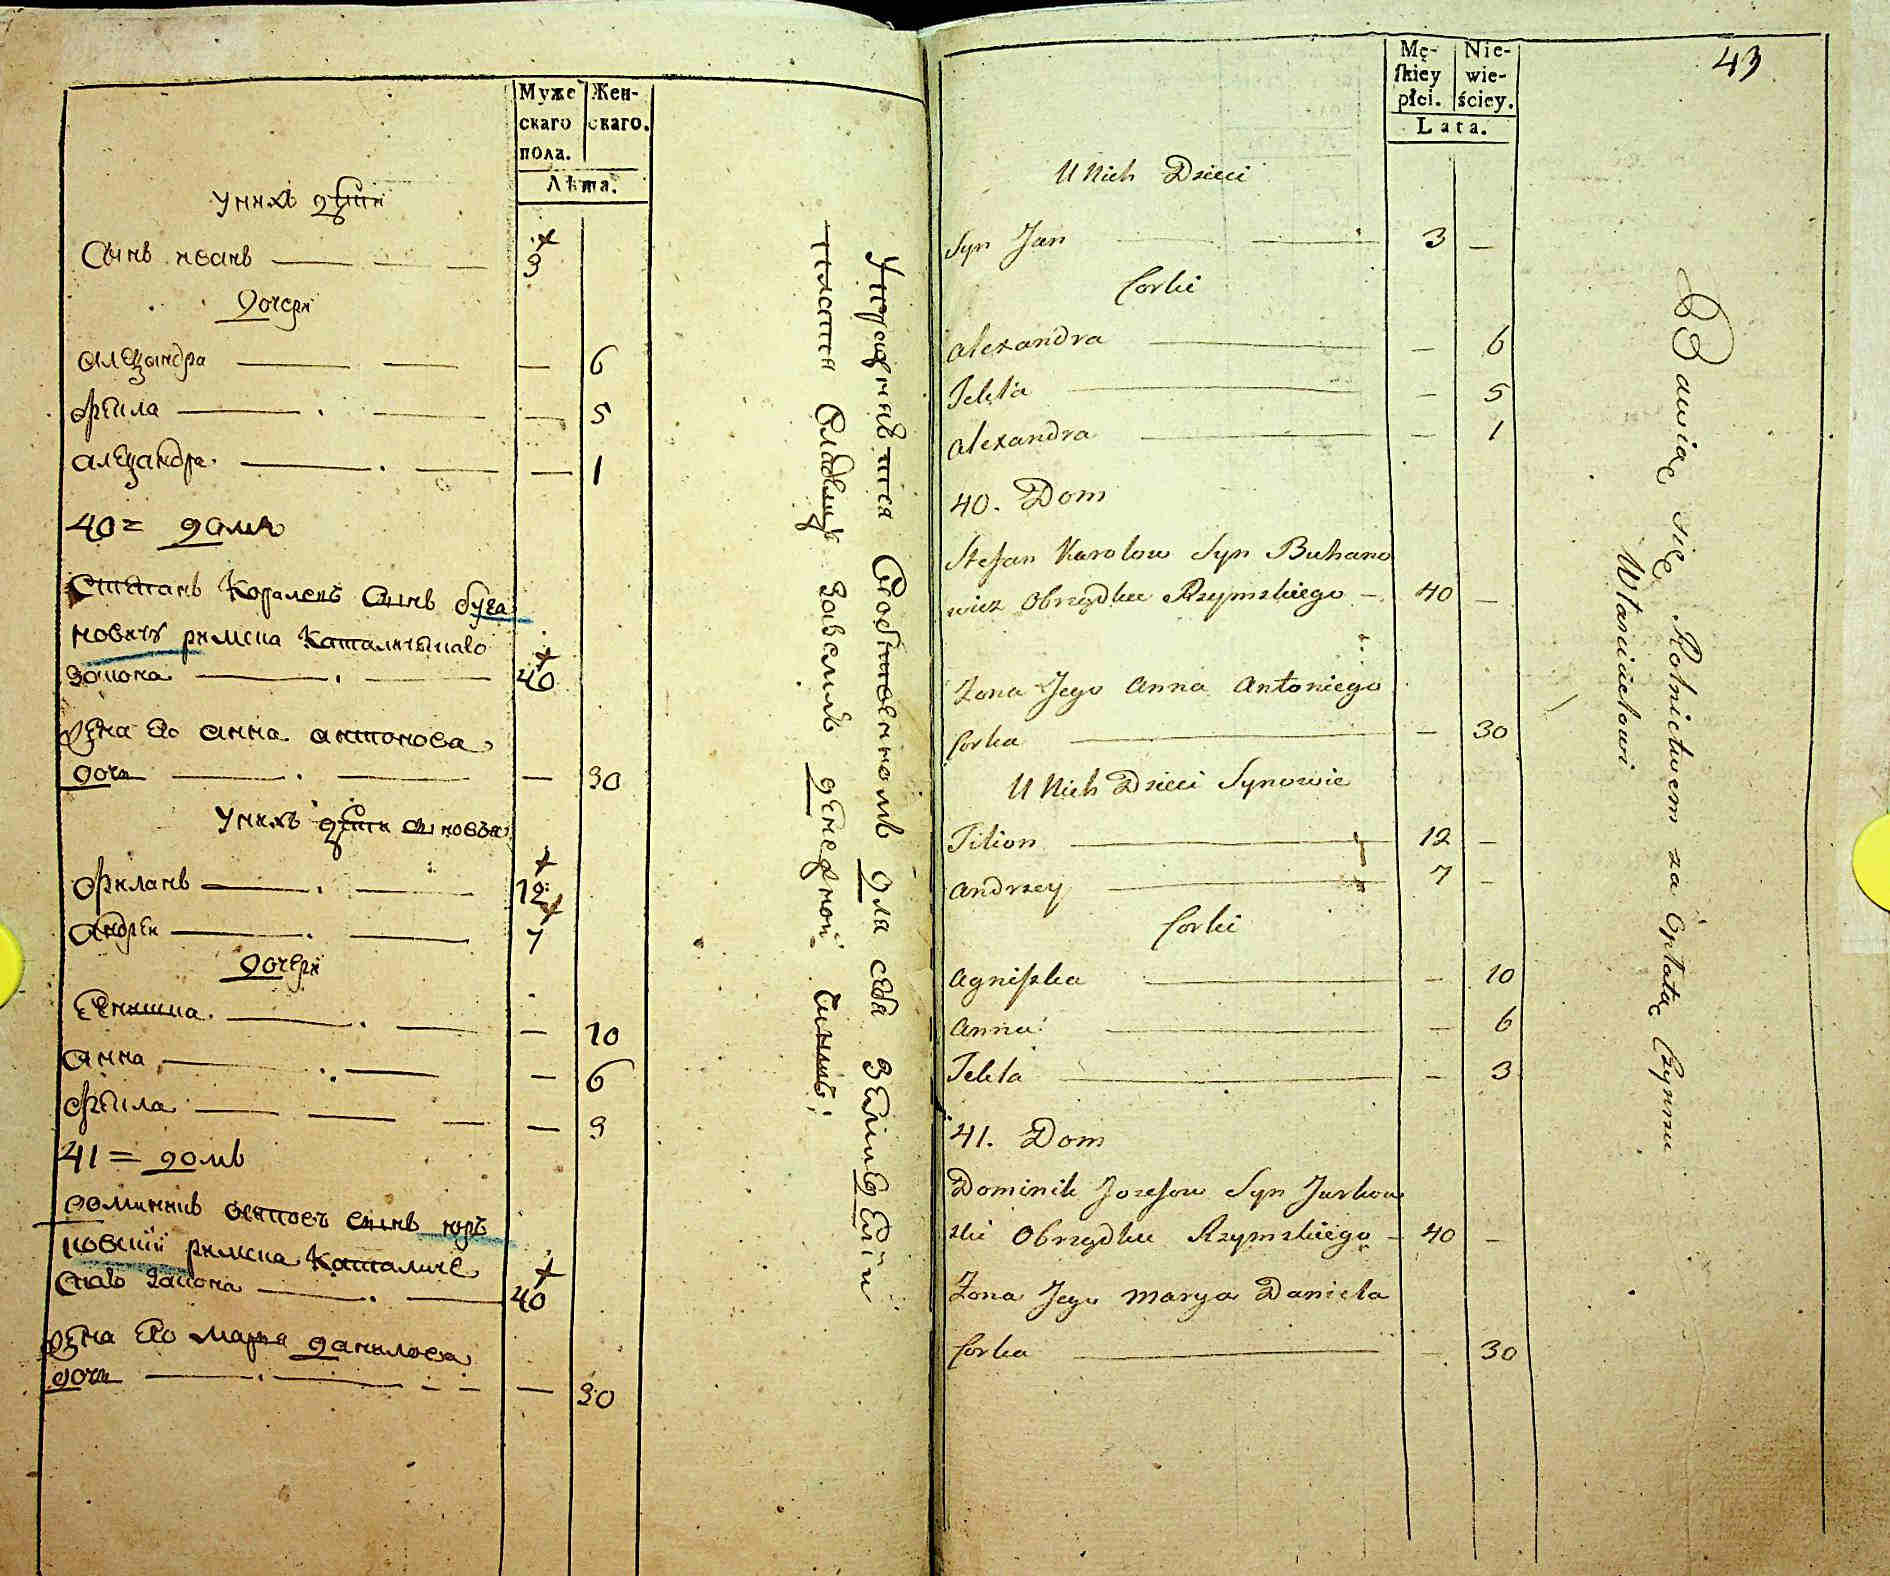 Муже
скаго
пола.
Жен-
скаго.
Лѣта.
У нихъ дѣти
Сынъ иванъ — 3
дочери
александра — 6
фекла — 5
александра — 1
40 = домъ
Степанъ Каролевъ сынъ буха
новичъ римска Католическаго
закона — 40
жена его анна антонова
дочь — 30
У нихъ дѣти сыновья
филонъ — 12
андрей — 7
дочери
анна — 6
фекла — 3
41 = домъ
доминикъ осиповъ сынъ юрь
ковский римска Католиче
скаго закона — 40
жена его марья данилова
дочь — 30
Упражняется собственномъ для себя
платя владельцу денежной чиншъ
43
Mę-
skiey
płci.
Nie-
wie-
ściey.
Lata.
U Nich Dzieci
Syn Jan — 3 —
Corki
Alexandra — 6
Tekla — 5
Alexandra — 1
40. Dom
Stefan Karolow Syn Buhano
wicz Obrządku Rzymskiego — 40 —
Żona Jego Anna Antoniego
Corka — 30
U Nich Dzieci Synowie
Filion — 12 —
Andrzey — 7 —
Corki
Agniszka — 10
Anna — 6
Tekla — 3
41. Dom
Dominik Jozefow Syn Jurkow
ski Obrządku Rzymskiego — 40 —
Żona Jego Marya Daniela
Corka — 30
Bawiąc się Rolnictwem za Opłatą Czynszu
Włascicielowi